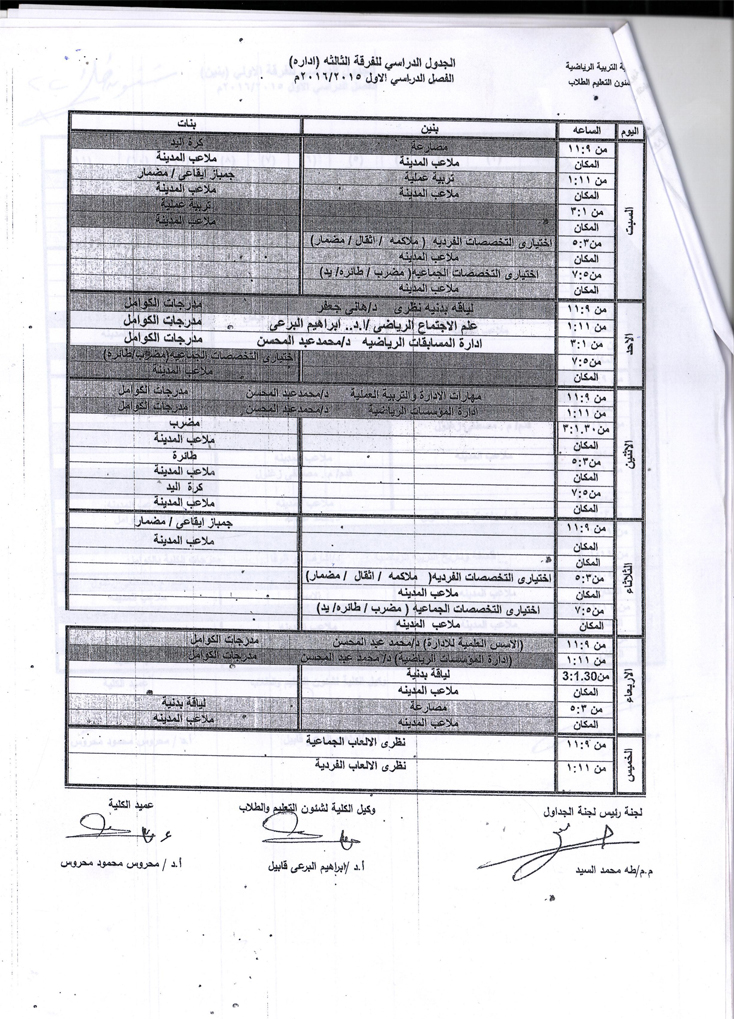 ة التربية الرياضية
شئون التعليم الطلاب
الجدول الدراسي للفرقة الثالثه (اداره)
الفصل الدراسي الاول ٢٠١٦/٢٠١٥م
اليوم الساعه بنين بنات
السبت
من ١١:٩ مصارعة كرة اليد
المكان ملاعب المدينة ملاعب المدينة
من ١:١١ تربية عملية جمباز ايقاعى / مضمار
المكان ملاعب المدينة ملاعب المدينة
من ٣:١ تربية عملية
المكان ملاعب المدينة
من ٥:٣ اختيارى التخصصات الفرديه ( ملاكمه / اثقال / مضمار)
المكان ملاعب المدينه
من ٧:٥ اختيارى التخصصات الجماعيه( مضرب / طائره/ يد)
المكان ملاعب المدينه
الاحد
من ١١:٩ لياقه بدنيه نظرى د/هانى جعفر مدرجات الكوامل
من ١:١١ علم الاجتماع الرياضى /ا.د.. ابراهيم البرعى مدرجات الكوامل
من ٣:١ ادارة المسابقات الرياضيه د/محمدعبد المحسن مدرجات الكوامل
من ٧:٥ اختيارى التخصصات الجماعيه(مضرب/طائرة)
المكان ملاعب المدينة
الاثنين
من ١١:٩ مهارات الادارة والتربية العملية د/محمدعبد المحسن مدرجات الكوامل
من ١:١١ ادارة المؤسسات الرياضية د/محمدعبد المحسن مدرجات الكوامل
من٣:١.٣٠ مضرب
المكان ملاعب المدينة
من٥:٣ طائرة
المكان ملاعب المدينة
من٧:٥ كرة اليد
المكان ملاعب المدينة
الثلاثاء
من ١١:٩ جمباز ايقاعى / مضمار
المكان ملاعب المدينة
المكان
من٥:٣ اختيارى التخصصات الفرديه( ملاكمه / اثقال / مضمار)
المكان ملاعب المدينه
من٧:٥ اختيارى التخصصات الجماعيه ( مضرب / طائره/ يد)
المكان ملاعب المدينه
الاربعاء
من ١١:٩ (الاسس العلمية للادارة) د/محمد عبد المحسن مدرجات الكوامل
من ١:١١ (ادارة المؤسسات الرياضيه) د/ محمد عبد المحسن مدرجات الكوامل
من3:1.30 لياقة بدنية
المكان ملاعب المدينه
من ٥:٣ مصارعة لياقة بدنية
المكان ملاعب المدينه ملاعب المدينه
الخميس
من ١١:٩ نظرى الالعاب الجماعية
من ١:١١ نظرى الالعاب الفردية
لجنة رئيس لجنة الجداول وكيل الكلية لشئون التعليم والطلاب عميد الكلية
م.م/طه محمد السيد أ.د /إبراهيم البرعى قابيل أ.د / محروس محمود محروس